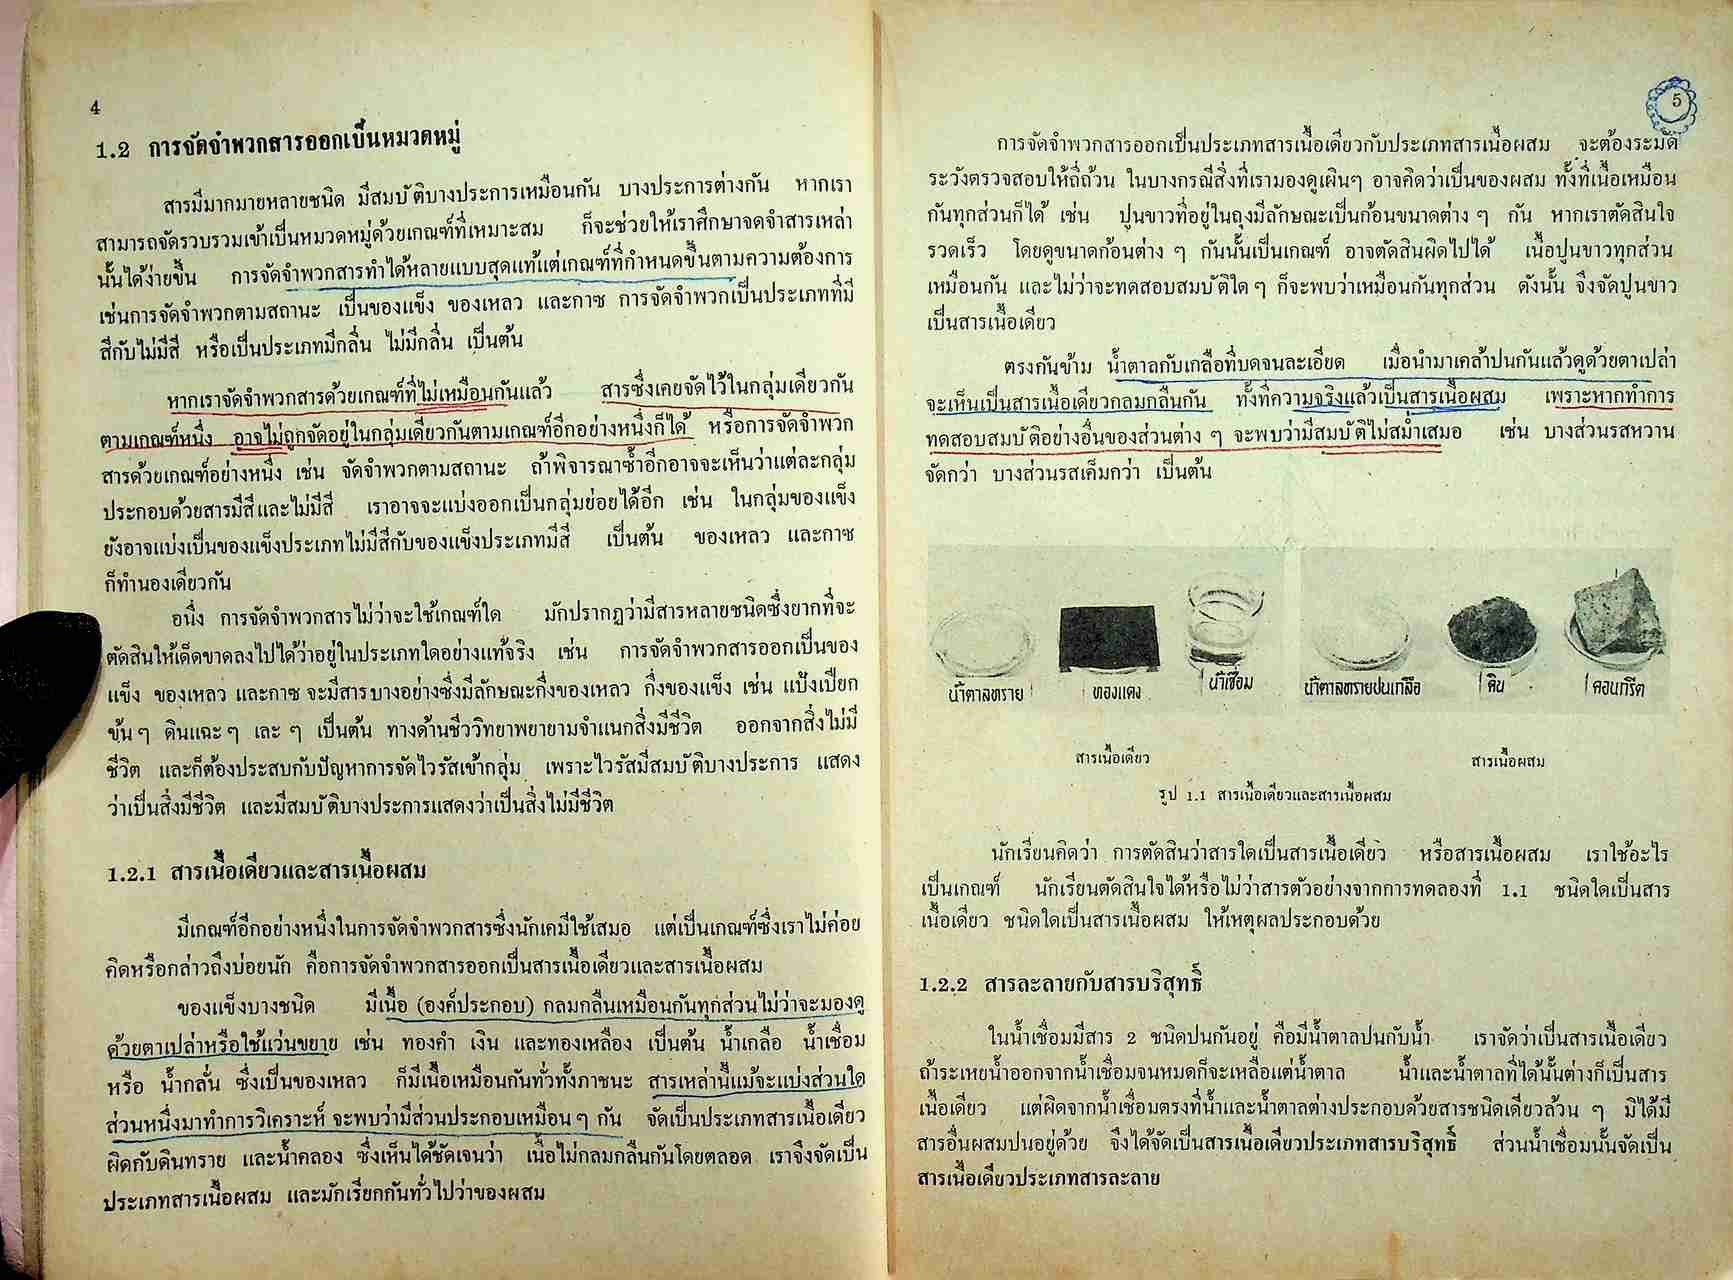 4
1.2 การจัดจำพวกสารออกเป็นหมวดหมู่
สารมีมากมายหลายชนิด มีสมบัติบางประการเหมือนกัน บางประการต่างกัน หากเรา
สามารถจัดรวบรวมเข้าเป็นหมวดหมู่ด้วยเกณฑ์ที่เหมาะสม ก็จะช่วยให้เราศึกษาจดจำสารเหล่า
นั้นได้ง่ายขึ้น การจัดจำพวกสารทำได้หลายแบบสุดแท้แต่เกณฑ์ที่กำหนดขึ้นตามความต้องการ
เช่นการจัดจำพวกตามสถานะ เป็นของแข็ง ของเหลว และกาซ การจัดจำพวกเป็นประเภทที่มี
สีกับไม่มีสี หรือเป็นประเภทมีกลิ่น ไม่มีกลิ่น เป็นต้น
หากเราจัดจำพวกสารด้วยเกณฑ์ที่ไม่เหมือนกันแล้ว สารซึ่งเคยจัดไว้ในกลุ่มเดียวกัน
ตามเกณฑ์หนึ่ง อาจไม่ถูกจัดอยู่ในกลุ่มเดียวกันตามเกณฑ์อีกอย่างหนึ่งก็ได้ หรือการจัดจำพวก
สารด้วยเกณฑ์อย่างหนึ่ง เช่น จัดจำพวกตามสถานะ ถ้าพิจารณาซ้ำอีกอาจจะเห็นว่าแต่ละกลุ่ม
ประกอบด้วยสารมีสีและไม่มีสี เราอาจจะแบ่งออกเป็นกลุ่มย่อยได้อีก เช่น ในกลุ่มของแข็ง
ยังอาจแบ่งเป็นของแข็งประเภทไม่มีสีกับของแข็งประเภทมีสี เป็นต้น ของเหลว และกาซ
ก็ทำนองเดียวกัน
อนึ่ง การจัดจำพวกสารไม่ว่าจะใช้เกณฑ์ใด มักปรากฏว่ามีสารหลายชนิดซึ่งยากที่จะ
ตัดสินให้เด็ดขาดลงไปได้ว่าอยู่ในประเภทใดอย่างแท้จริง เช่น การจัดจำพวกสารออกเป็นของ
แข็ง ของเหลว และกาซ จะมีสารบางอย่างซึ่งมีลักษณะกึ่งของเหลว กึ่งของแข็ง เช่น แป้งเปียก
ข้น ๆ ดินแฉะ ๆ เละ ๆ เป็นต้น ทางด้านชีววิทยาพยายามจำแนกสิ่งมีชีวิต ออกจากสิ่งไม่มี
ชีวิต และก็ต้องประสบกับปัญหาการจัดไวรัสเข้ากลุ่ม เพราะไวรัสมีสมบัติบางประการ แสดง
ว่าเป็นสิ่งมีชีวิต และมีสมบัติบางประการแสดงว่าเป็นสิ่งไม่มีชีวิต
1.2.1 สารเนื้อเดียวและสารเนื้อผสม
มีเกณฑ์อีกอย่างหนึ่งในการจัดจำพวกสารซึ่งนักเคมีใช้เสมอ แต่เป็นเกณฑ์ซึ่งเราไม่ค่อย
คิดหรือกล่าวถึงบ่อยนัก คือการจัดจำพวกสารออกเป็นสารเนื้อเดียวและสารเนื้อผสม
ของแข็งบางชนิด มีเนื้อ (องค์ประกอบ) กลมกลืนเหมือนกันทุกส่วนไม่ว่าจะมองดู
ด้วยตาเปล่าหรือใช้แว่นขยาย เช่น ทองคำ เงิน และทองเหลือง เป็นต้น น้ำเกลือ น้ำเชื่อม
หรือ น้ำกลั่น ซึ่งเป็นของเหลว ก็มีเนื้อเหมือนกันทั่วทั้งภาชนะ สารเหล่านี้แม้จะแบ่งส่วนใด
ส่วนหนึ่งมาทำการวิเคราะห์ จะพบว่ามีส่วนประกอบเหมือน ๆ กัน จัดเป็นประเภทสารเนื้อเดียว
ผิดกับดินทราย และน้ำคลอง ซึ่งเห็นได้ชัดเจนว่า เนื้อไม่กลมกลืนกันโดยตลอด เราจึงจัดเป็น
ประเภทสารเนื้อผสม และมักเรียกกันทั่วไปว่าของผสม
5
การจัดจำพวกสารออกเป็นประเภทสารเนื้อเดียวกับประเภทสารเนื้อผสม จะต้องระมัด
ระวังตรวจสอบให้ถี่ถ้วน ในบางกรณีสิ่งที่เรามองดูเผินๆ อาจคิดว่าเป็นของผสม ทั้งที่เนื้อเหมือน
กันทุกส่วนก็ได้ เช่น ปูนขาวที่อยู่ในถุงมีลักษณะเป็นก้อนขนาดต่าง ๆ กัน หากเราตัดสินใจ
รวดเร็ว โดยดูขนาดก้อนต่าง ๆ กันนั้นเป็นเกณฑ์ อาจตัดสินผิดไปได้ เนื้อปูนขาวทุกส่วน
เหมือนกัน และไม่ว่าจะทดสอบสมบัติใด ๆ ก็จะพบว่าเหมือนกันทุกส่วน ดังนั้น จึงจัดปูนขาว
เป็นสารเนื้อเดียว
ตรงกันข้าม น้ำตาลกับเกลือที่บดจนละเอียด เมื่อนำมาเคล้าปนกันแล้วดูด้วยตาเปล่า
จะเห็นเป็นสารเนื้อเดียวกลมกลืนกัน ทั้งที่ความจริงแล้วเป็นสารเนื้อผสม เพราะหากทำการ
ทดสอบสมบัติอย่างอื่นของส่วนต่าง ๆ จะพบว่ามีสมบัติไม่สม่ำเสมอ เช่น บางส่วนรสหวาน
จัดกว่า บางส่วนรสเค็มกว่า เป็นต้น
น้ำตาลทราย ทองแดง น้ำเชื่อม น้ำตาลทรายปนเกลือ ดิน คอนกรีต
สารเนื้อเดียว สารเนื้อผสม
รูป 1.1 สารเนื้อเดียวและสารเนื้อผสม
นักเรียนคิดว่า การตัดสินว่าสารใดเป็นสารเนื้อเดียว หรือสารเนื้อผสม เราใช้อะไร
เป็นเกณฑ์ นักเรียนตัดสินใจได้หรือไม่ว่าสารตัวอย่างจากการทดลองที่ 1.1 ชนิดใดเป็นสาร
เนื้อเดียว ชนิดใดเป็นสารเนื้อผสม ให้เหตุผลประกอบด้วย
1.2.2 สารละลายกับสารบริสุทธิ์
ในน้ำเชื่อมมีสาร 2 ชนิดปนกันอยู่ คือมีน้ำตาลปนกับน้ำ เราจัดว่าเป็นสารเนื้อเดียว
ถ้าระเหยน้ำออกจากน้ำเชื่อมจนหมดก็จะเหลือแต่น้ำตาล น้ำและน้ำตาลที่ได้นั้นต่างก็เป็นสาร
เนื้อเดียว แต่ผิดจากน้ำเชื่อมตรงที่น้ำและน้ำตาลต่างประกอบด้วยสารชนิดเดียวล้วน ๆ มิได้มี
สารอื่นผสมปนอยู่ด้วย จึงได้จัดเป็นสารเนื้อเดียวประเภทสารบริสุทธิ์ ส่วนน้ำเชื่อมนั้นจัดเป็น
สารเนื้อเดียวประเภทสารละลาย